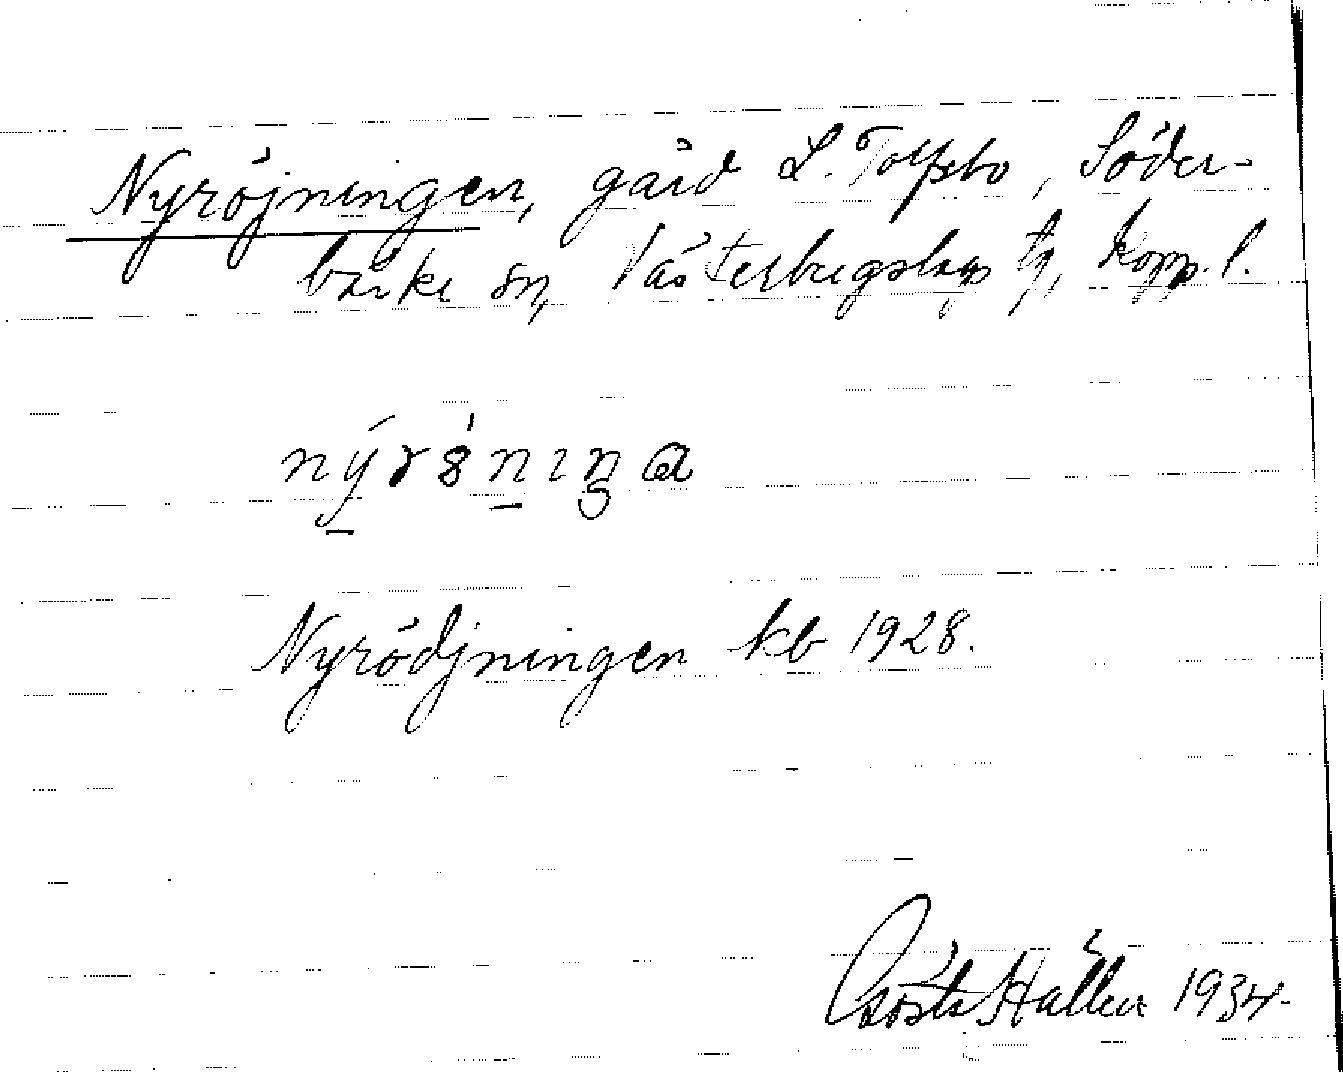 Nyröjningen, gård L. Tolfsbo, Söder-
bärke sn, Västerbergslags tg, Kopp. l.
nýrönıŋa
Nyrödjningen kb 1928.
Gösta Hallén 1934.